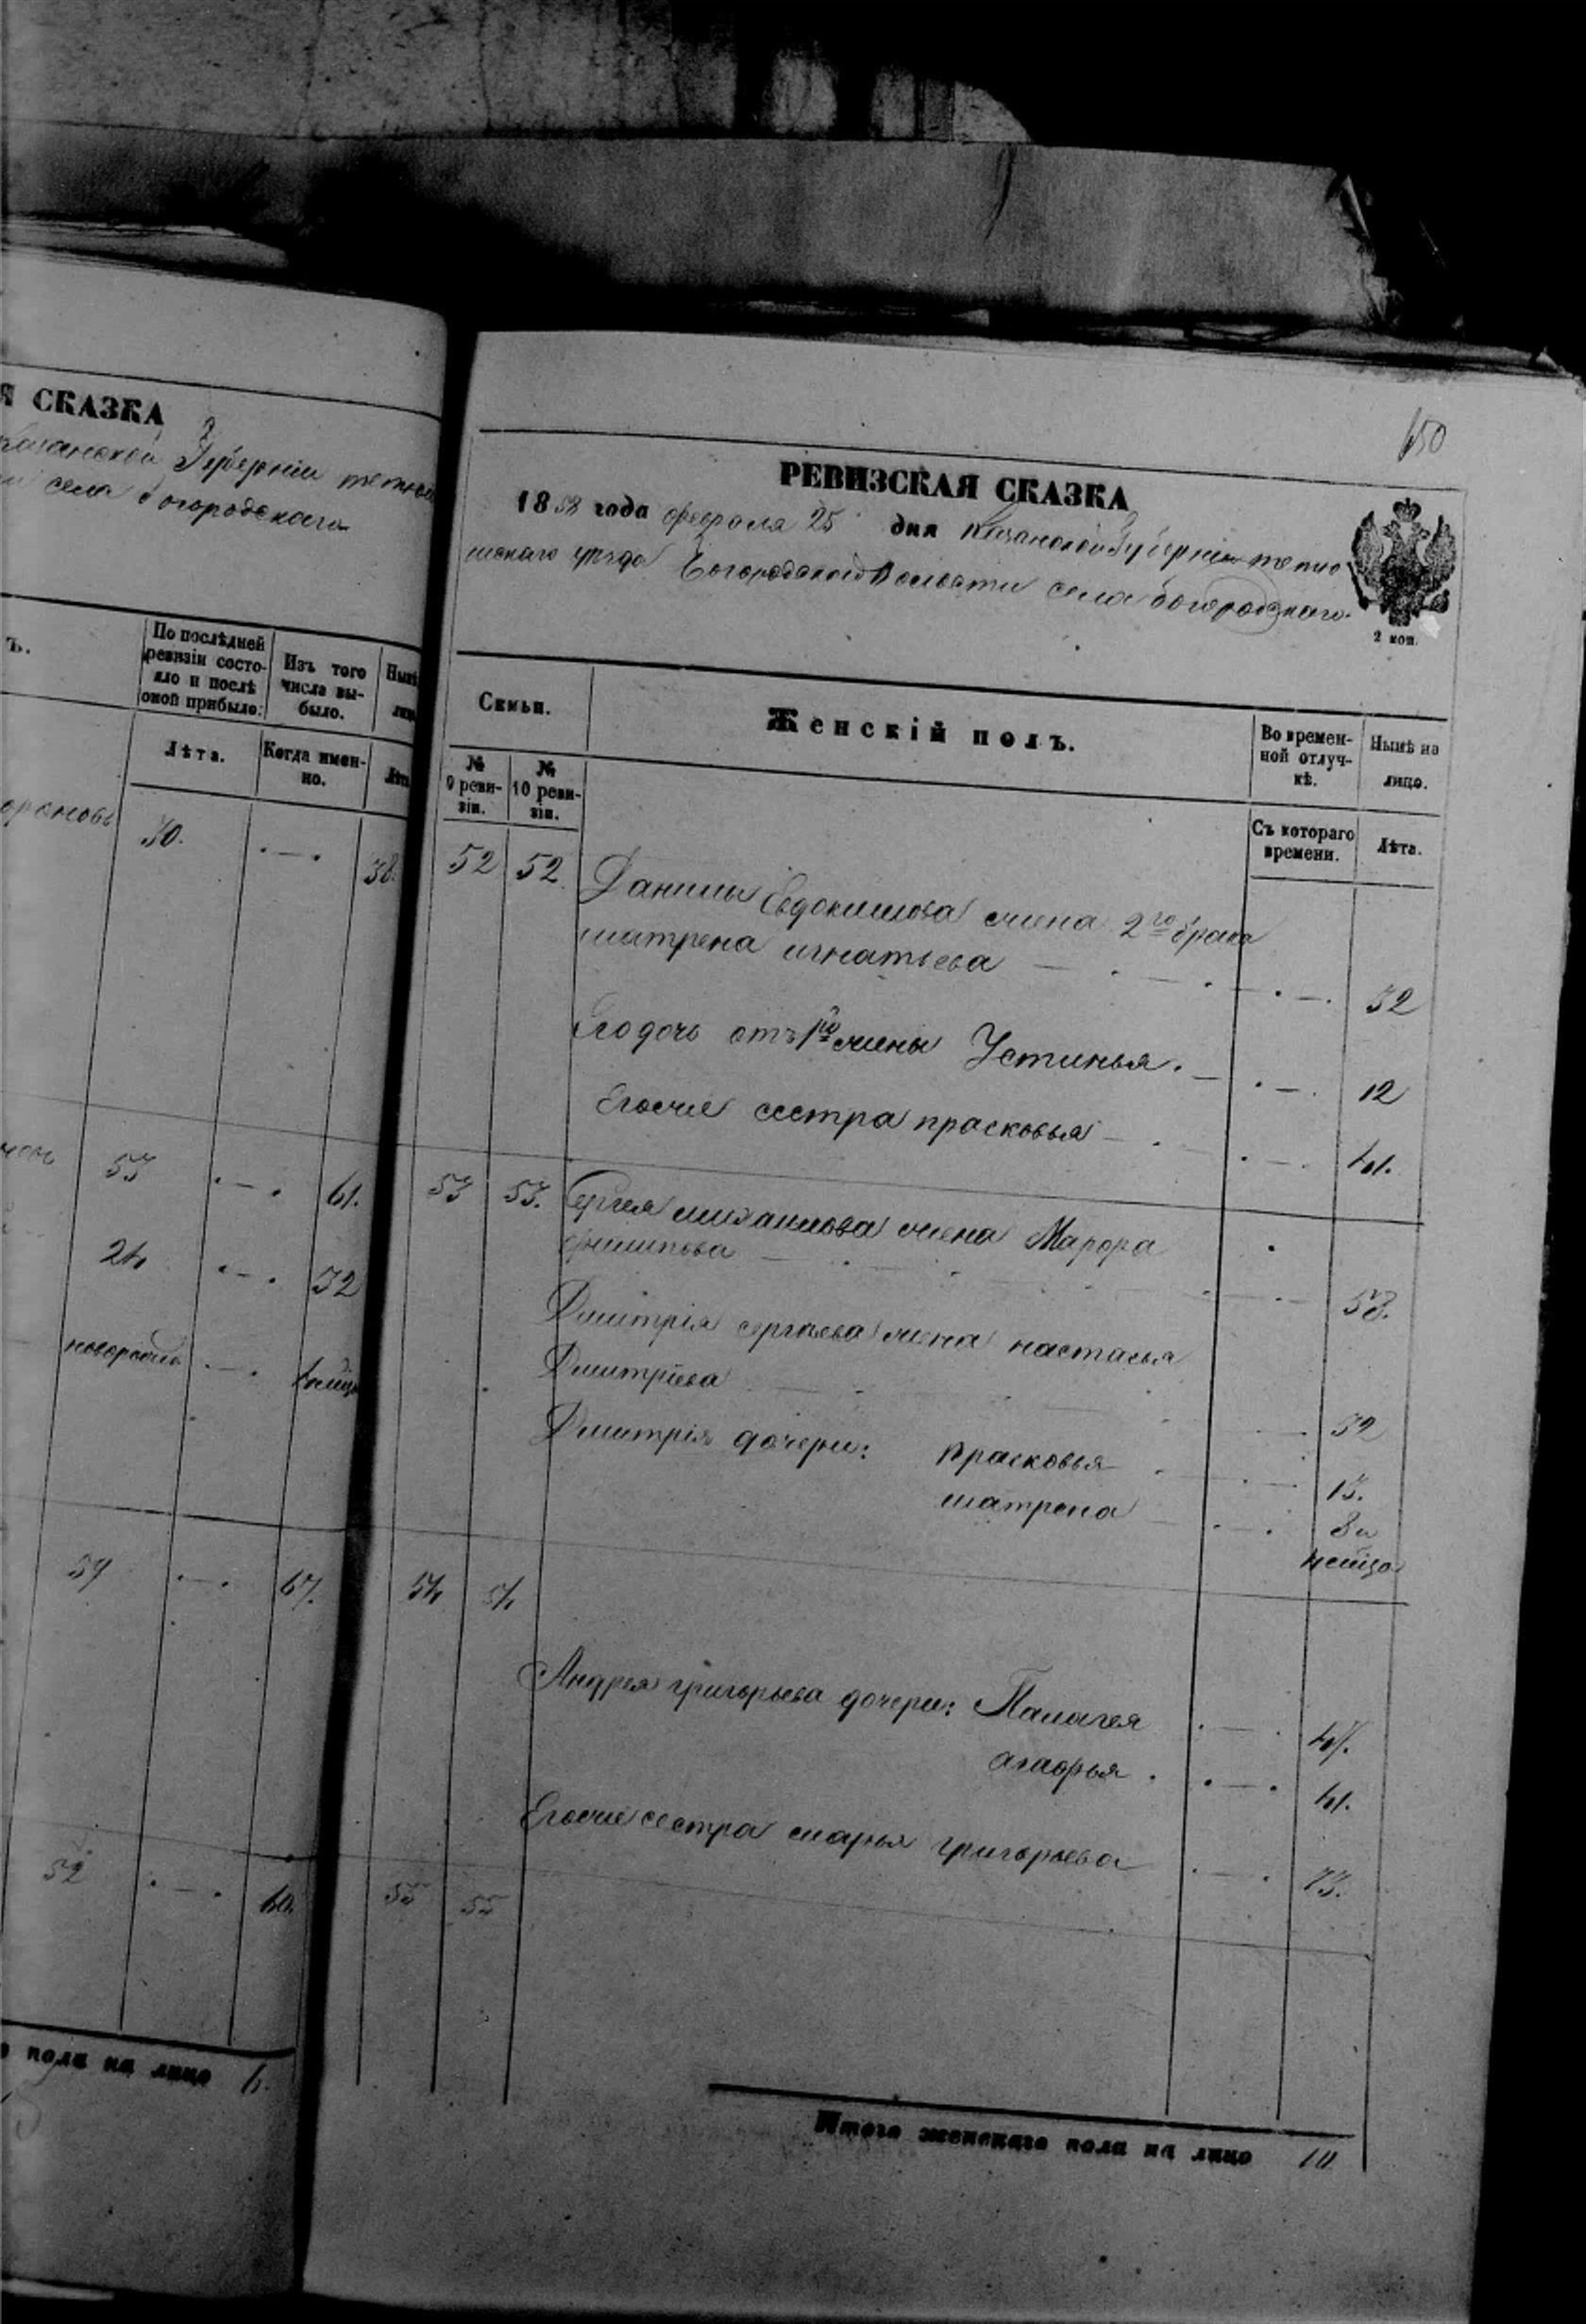 Я СКАЗКА
Казанской Губерніи тетюш
села Богородскаго
Ъ.
По послѣдней ревизіи состо-
яло и послѣ
оной прибыло.
Изъ того
числа вы-
было.
Нынѣ
лиц
Лѣта.
Когда имен-
но.
Лѣта
30. . — . 38.
53 . — . 61.
24 . — . 32
новорожд . — .
59 . — . 67.
52 . — . 60.
пола на лицо 6.
150
РЕВИЗСКАЯ СКАЗКА
1858 года февраля 25 дня Казанской Губерніи тетю
шскаго уѣзда Богородской Волости села Богородскаго.
2 коп.
Семьи.
Женскій полъ.
Во времен-
ной отлуч-
кѣ.
Нынѣ на
лицо.
№
9 реви-
зіи.
№
10 реви-
зіи.
Съ котораго
времени.
Лѣта.
52 52. Данилы Евдокимова жена 2го брака
матрена игнатьева — . — . . — . 32
Его дочь отъ 1й жены Устинья. — . — . 12
Егоже сестра прасковья — . . — . 41.
53 53. Сергея михаилова жена Марфа
филипова — . — 58.
Дмитрія сергѣева жена настасья
Дмитріева — 32
Дмитрія дочери: прасковья . — 13.
матрена — . . 8 и
54 54
Андрея григорьева дочери: Палагея . — . 47.
агафья . . — . 41.
Егоже сестра марья григорьева . — . 73.
55 55
Итого женскаго пола на лицо 10